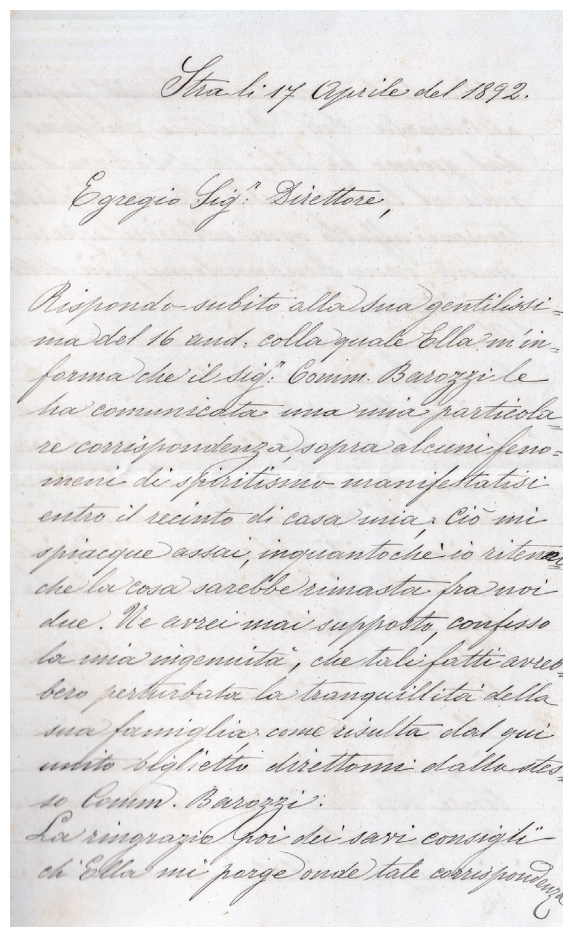 Stra li 17 Aprile del 1892.
Egregio Sig.r Direttore,
Rispondo subito alla sua gentilissi=
ma del 16 and. colla quale Ella m'in=
forma che il sig.r Comm. Barozzi le
ha comunicata una mia particola=
re corrispondenza sopra alcuni feno=
meni di spiritismo manifestatisi
entro il recinto di casa mia. Ciò mi
spiacque assai, inquantochè io
che la cosa sarebbe rimasta fra noi
due. Ne avrei mai supposto, confesso
la mia ingenuità, che tali fatti avreb=
bero perturbata la tranquillità della
sua famiglia, come risulta dal qui
unito biglietto direttomi dallo stes=
so Comm. Barozzi.
La ringrazio poi dei savi consigli
ch'Ella mi porge onde tale corrispondenza